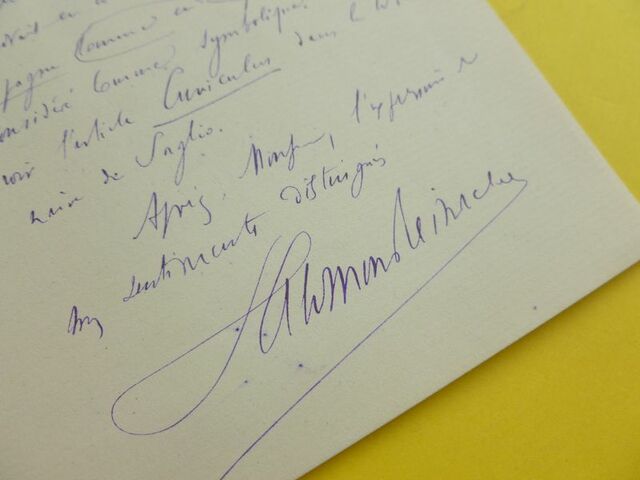 Espagne comme
considéré comme symbolique.
voir l'article Cuniculus dans le
naire de Saglio.
Agréez, Monsieur, l'expression de
mes sentiments distingués
Salomon Reinach